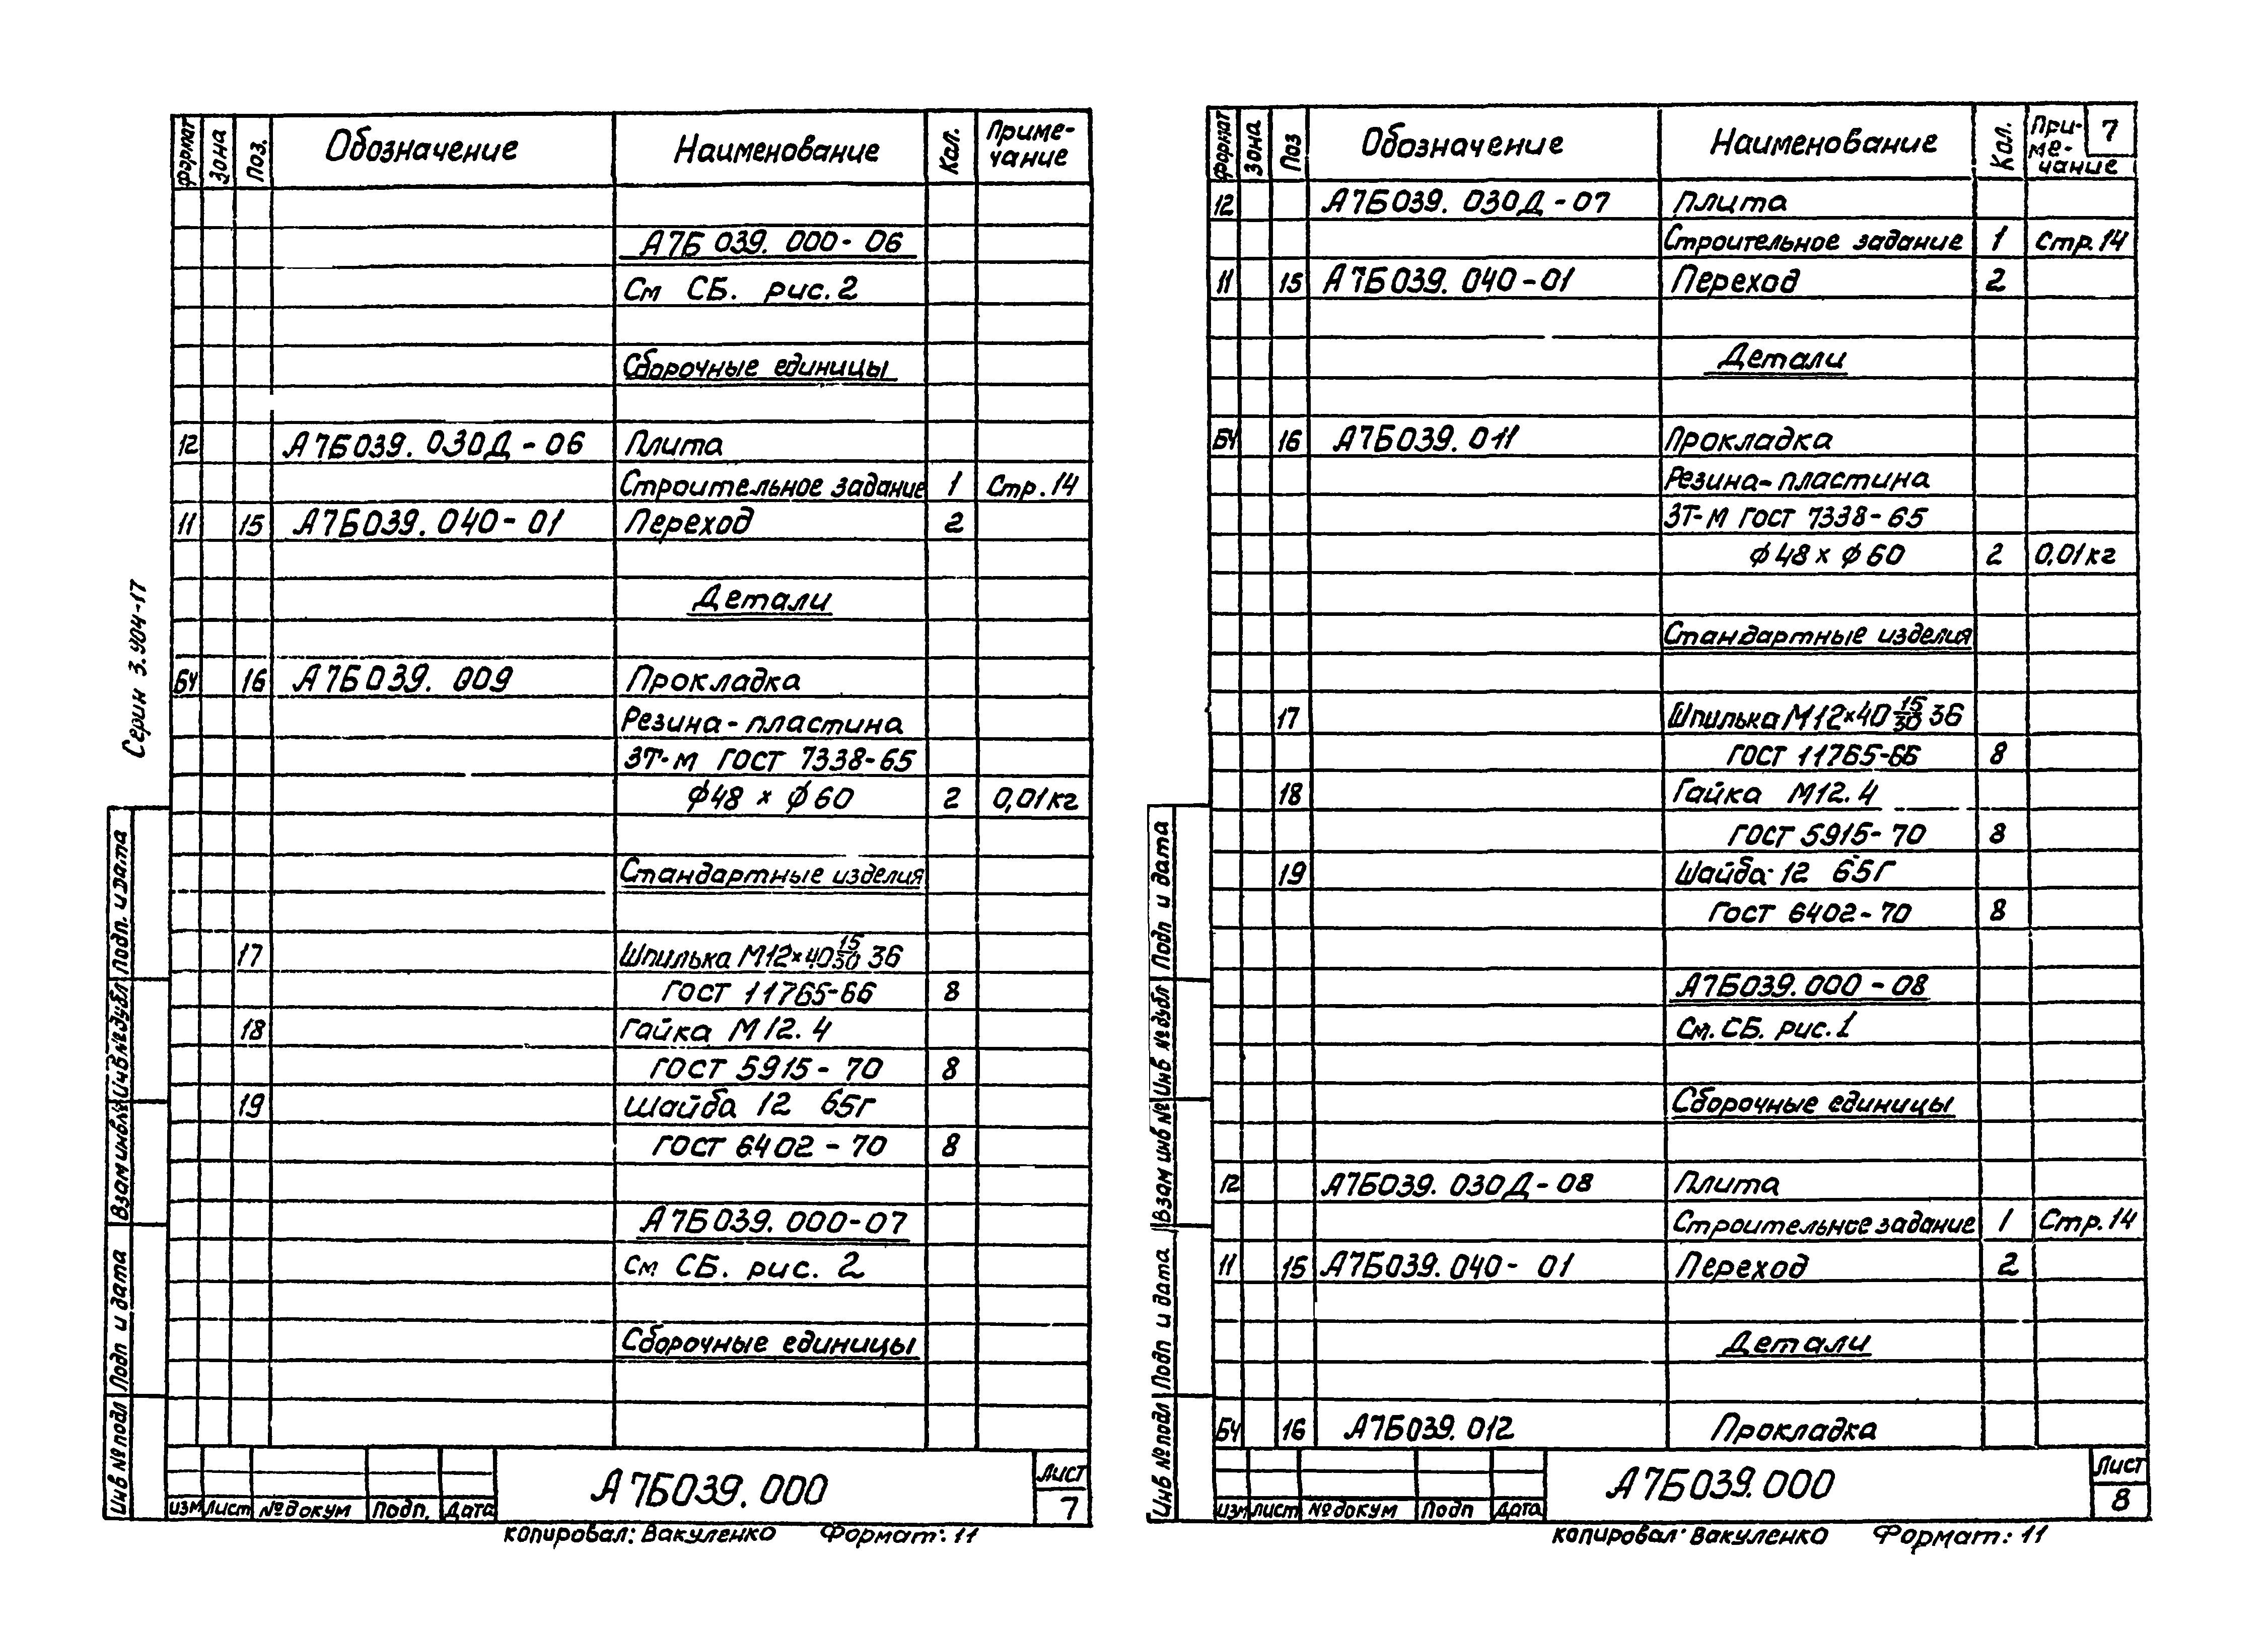 Серии 3.904-17
Формат Зона Поз. Обозначение Наименование Кол. Приме-
чание
А7Б039.000-06
См СБ. рис. 2
Сборочные единицы
12 А7Б039.030Д-06 Плита
Строительное задание 1 Стр.14
11 15 А7Б039.040-01 Переход 2
Детали
БЧ 16 А7Б039.009 Прокладка
Резина-пластина
3Т-м ГОСТ 7338-65
ф48 х ф60 2 0,01кг
Стандартные изделия
17 Шпилька М12×40 15/30 36
ГОСТ 11765-66 8
18 Гайка М12.4
ГОСТ 5915-70 8
19 Шайба 12 65Г
ГОСТ 6402-70 8
А7Б039.000-07
См СБ. рис. 2
Сборочные единицы
Инв № подл Подп и дата Взам инв № Инв № дубл Подп. и дата
А7Б039.000
Лист
7
Изм Лист № докум Подп. Дата
копировал: Вакуленко Формат: 11
Формат Зона Поз Обозначение Наименование Кол. При-
ме-
чание
7
12 А7Б039.030Д-07 Плита
Строительное задание 1 Стр.14
11 15 А7Б039.040-01 Переход 2
Детали
БЧ 16 А7Б039.011 Прокладка
Резина-пластина
3Т-м ГОСТ 7338-65
ф48 х ф60 2 0,01кг
Стандартные изделия
17 Шпилька М12×40 15/30 36
ГОСТ 11765-66 8
18 Гайка М12.4
ГОСТ 5915-70 8
19 Шайба 12 65Г
ГОСТ 6402-70 8
А7Б039.000-08
См. СБ. рис. 1
Сборочные единицы
12 А7Б039.030Д-08 Плита
Строительное задание 1 Стр.14
11 15 А7Б039.040-01 Переход 2
Детали
БЧ 16 А7Б039.012 Прокладка
Инв № подл Подп и дата Взам инв № Инв № дубл Подп и дата
А7Б039.000
Лист
8
Изм Лист № докум Подп Дата
копировал: Вакуленко Формат: 11